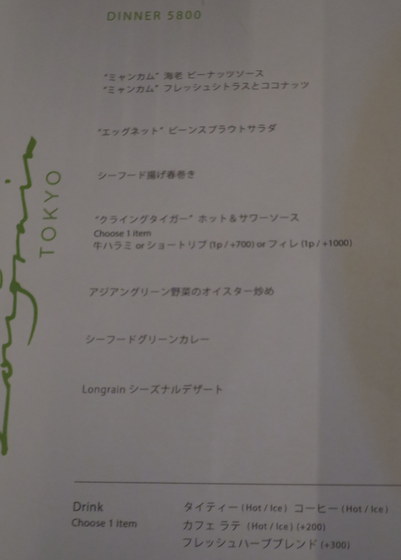 DINNER 5800
"ミャンカム" 海老 ピーナッツソース
"ミャンカム" フレッシュシトラスとココナッツ
"エッグネット" ビーンスプラウトサラダ
シーフード揚げ春巻き
"クライングタイガー" ホット＆サワーソース
Choose 1 item
牛ハラミ or ショートリブ (1p / +700) or フィレ (1p / +1000)
アジアングリーン野菜のオイスター炒め
シーフードグリーンカレー
Longrain シーズナルデザート
Longrain
TOKYO
Drink タイティー (Hot / Ice) コーヒー (Hot / Ice)
Choose 1 item カフェ ラテ (Hot / Ice) (+200)
フレッシュハーブブレンド (+300)